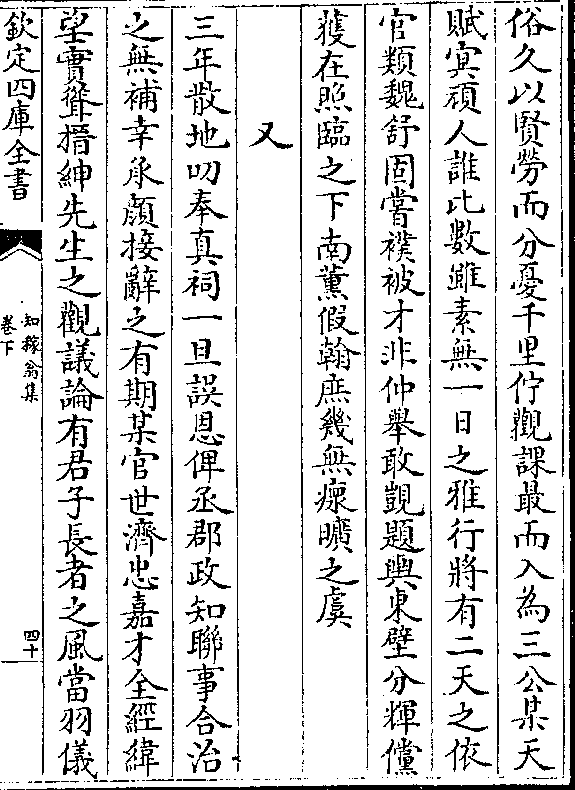 俗久以賢勞而分憂千里佇觀課最而入為三公某天
賦冥頑人誰比數雖素無一日之雅行將有二天之依
官類魏舒固嘗襆被才非仲舉敢覬題輿東壁分輝儻
獲在照臨之下南薰假翰庶幾無瘝曠之虞
又
三年散地叨奉真祠一旦誤恩俾丞郡政知聯事合治
之無補幸承顔接辭之有期某官世濟忠嘉才全經緯
望實聳搢紳先生之觀議論有君子長者之風當羽儀
欽定四庫全書
知稼翁集
卷下
四十